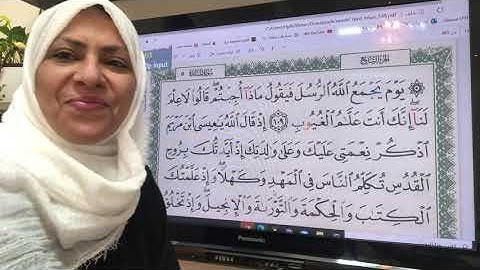 يَوْمَ يَجْمَعُ اللَّهُ الرُّسُلَ فَيَقُولُ مَاذَا أُجِبْتُمْ قَالُوا لَا عِلْمَ
لَنَا إِنَّكَ أَنتَ عَلَّامُ الْغُيُوبِ ١٠٩ إِذْ قَالَ اللَّهُ يَاعِيسَى ابْنَ مَرْيَمَ
اذْكُرْ نِعْمَتِي عَلَيْكَ وَعَلَى وَالِدَتِكَ إِذْ أَيَّدتُّكَ بِرُوحِ
الْقُدُسِ تُكَلِّمُ النَّاسَ فِي الْمَهْدِ وَكَهْلًا وَإِذْ عَلَّمْتُكَ
الْكِتَابَ وَالْحِكْمَةَ وَالتَّوْرَاةَ وَالْإِنجِيلَ وَإِذْ تَخْلُقُ
Panasonic